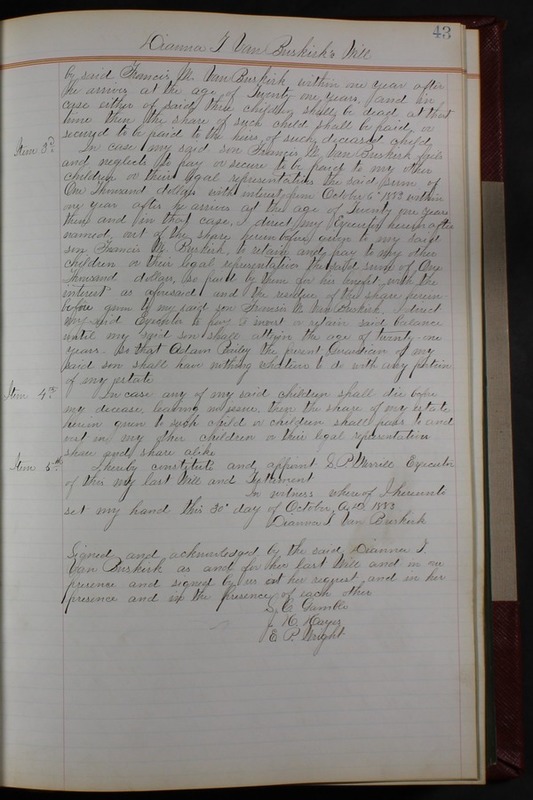 43
Dianna T Van Buskirk's Will
by said Francis M. Van Buskirk within one year after
he arrives at the age of Twenty one years, and in
case either of said three children shall be dead at that
time then the share of such child shall be paid or
secured to be paid to the heirs of such deceased child
Item 3rd In case my said son Francis M. Van Buskirk fails
and neglects to pay or secure to be paid to my other
children or their legal representatives the said sum of
One Thousand dollars with interest from October 6" 1883 within
one year after he arrives at the age of Twenty one years
then and in that case, I direct my Executor herein after
named, out of the share herein before given to my said
son Francis M. Buskirk, to retain and pay to my other
children or their legal representatives the said sum of One
Thousand dollars, so paid by them for her benefit with the
interest as aforesaid and the residue of the share herein
before given to my said son Francis M. Van Buskirk I direct
my said Executor to pay invest or retain said balance
until my said son shall attain the age of twenty-one
years. So that Adam the present Guardian of my
said son shall have nothing whatever to do with any portion
of my estate
Item 4th In case any of my said children shall die before
my decease, leaving no issue, then the share of my estate
herein given to such child or children shall pass to and
vest in my other children or their legal representatives
share and share alike
Item 5th I hereby constitute and appoint S. P. Executor
of this my last Will and Testament
In witness whereof I hereunto
set my hand this 30" day of October, A.D. 1883
Dianna T Van Buskirk
Signed and acknowledged by the said Dianna T.
Van Buskirk as and for her last Will and in our
presence and signed by us at her request and in her
presence and in the presence of each other
S. C. Gamble
J. H. Hayes
E. P. Wright